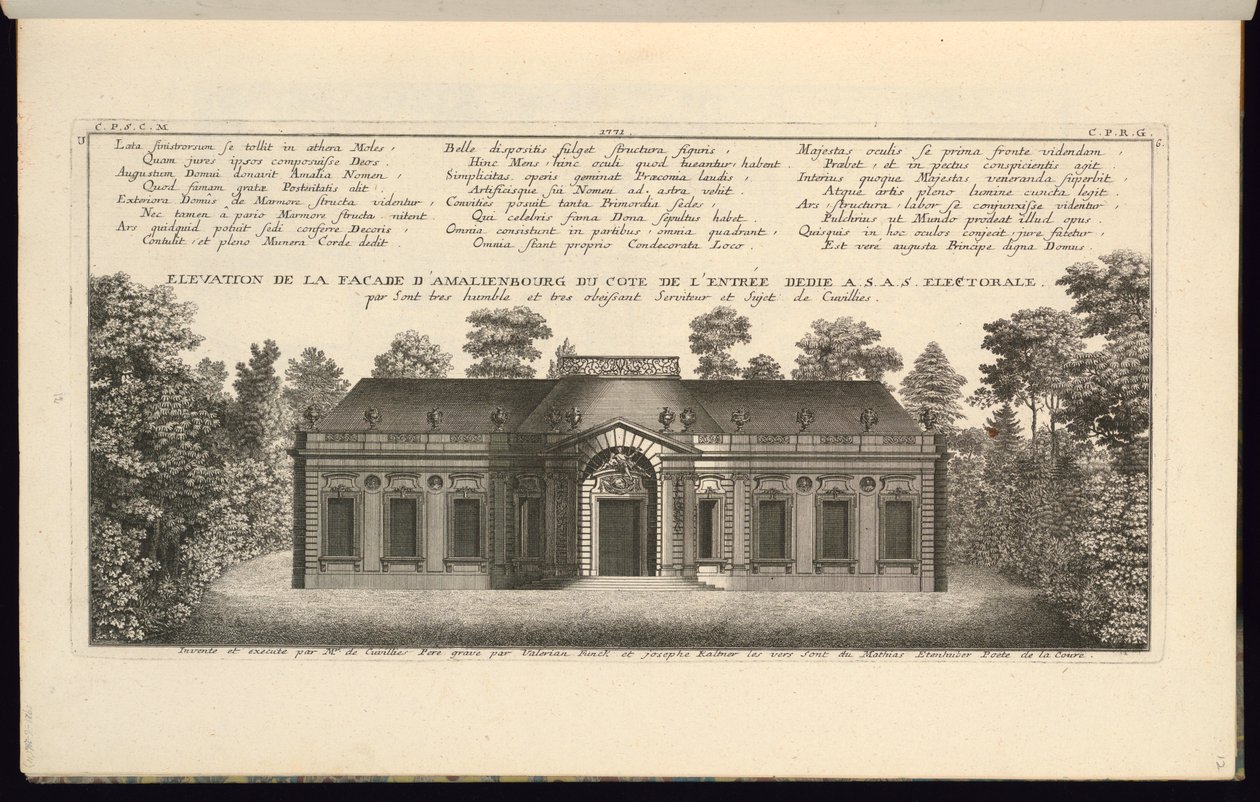 C. P. S. C. M.
1771.
C. P. R. G.
U
6.
Lata sinistrorsum se tollit in æthera Moles,
Quam jures ipsos composuisse Deos.
Augustum Domui donavit Amalia Nomen,
Quod famam gratæ Posteritatis alit.
Exteriora Domus de Marmore structa videntur,
Nec tamen a pario Marmore structa nitent.
Ars quidquid potuit sedi conferre Decoris,
Contulit, et pleno Munera Corde dedit.
Belle dispositis fulget structura figuris,
Hinc Mens, hinc oculi quod tueantur, habent.
Simplicitas operis geminat Præconia laudis,
Artificisque sui Nomen ad astra vehit.
Convities posuit tanta Primordia sedes,
Qui celebris fama Dona sepultus habet.
Omnia consistunt in partibus, omnia quadrant,
Omnia stant proprio Condecorata Loco.
Majestas oculis se prima fronte videndam,
Præbet, et in pectus conspicientis agit.
Interius quoque Majestas veneranda superbit,
Atque artis pleno lumine cuncta legit.
Ars, structura, labor se conjunxisse videntur,
Pulchrius ut Mundo prodeat illud opus.
Quisquis in hoc oculos conjecit, jure fatetur,
Est veré augusta Principe digna Domus.
ELEVATION DE LA FAÇADE D'AMALIENBOURG DU COTE DE L'ENTRÉE DEDIE A. S. A. S. ELECTORALE.
par Sont tres humble et tres obeissant Serviteur et Sujet de Cuvillies.
Invente et execute par Mr. de Cuvillies Pere grave par Valerian Funck et josephe Kaltner les vers sont du Mathias Etenhuber Poete de la Coure.
12
12